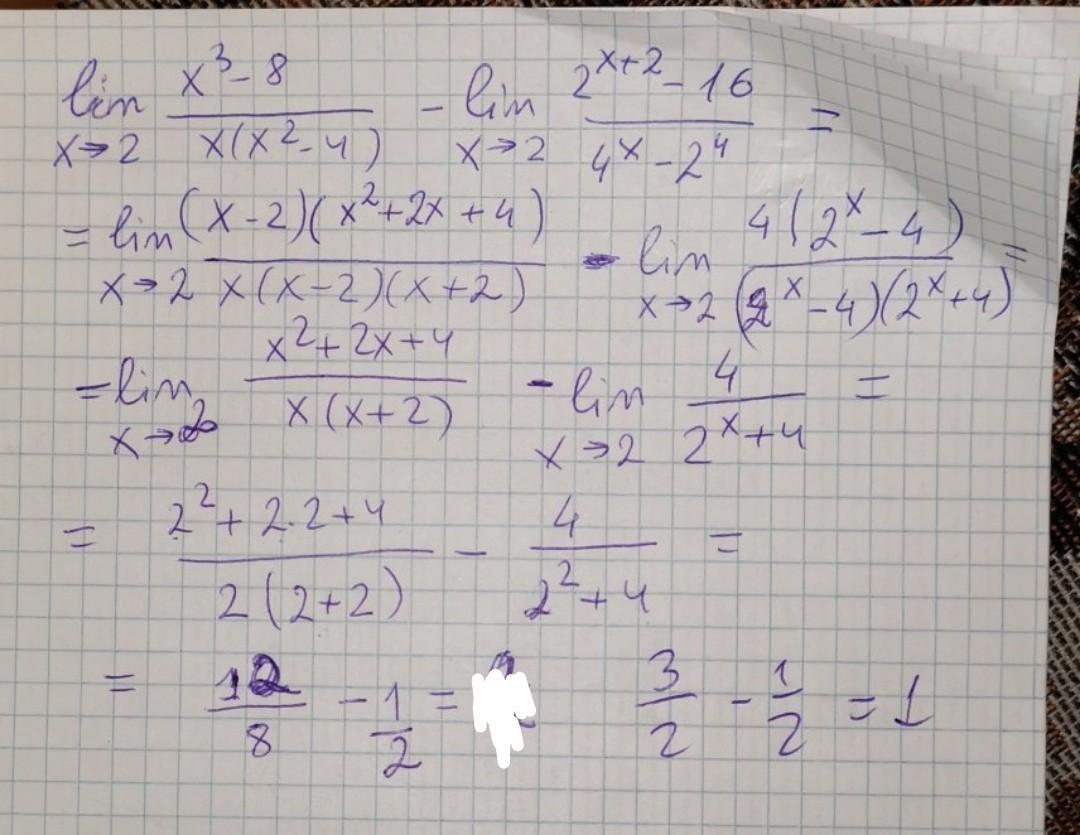 lim x→2 (x³-8)/(x(x²-4)) - lim x→2 (2^(x+2)-16)/(4^x-2⁴) =
= lim x→2 ((x-2)(x²+2x+4))/(x(x-2)(x+2)) - lim x→2 (4(2^x-4))/((2^x-4)(2^x+4)) =
= lim x→2 (x²+2x+4)/(x(x+2)) - lim x→2 4/(2^x+4) =
= (2²+2·2+4)/(2(2+2)) - 4/(2²+4) =
= 12/8 - 1/2 = 3/2 - 1/2 = 1